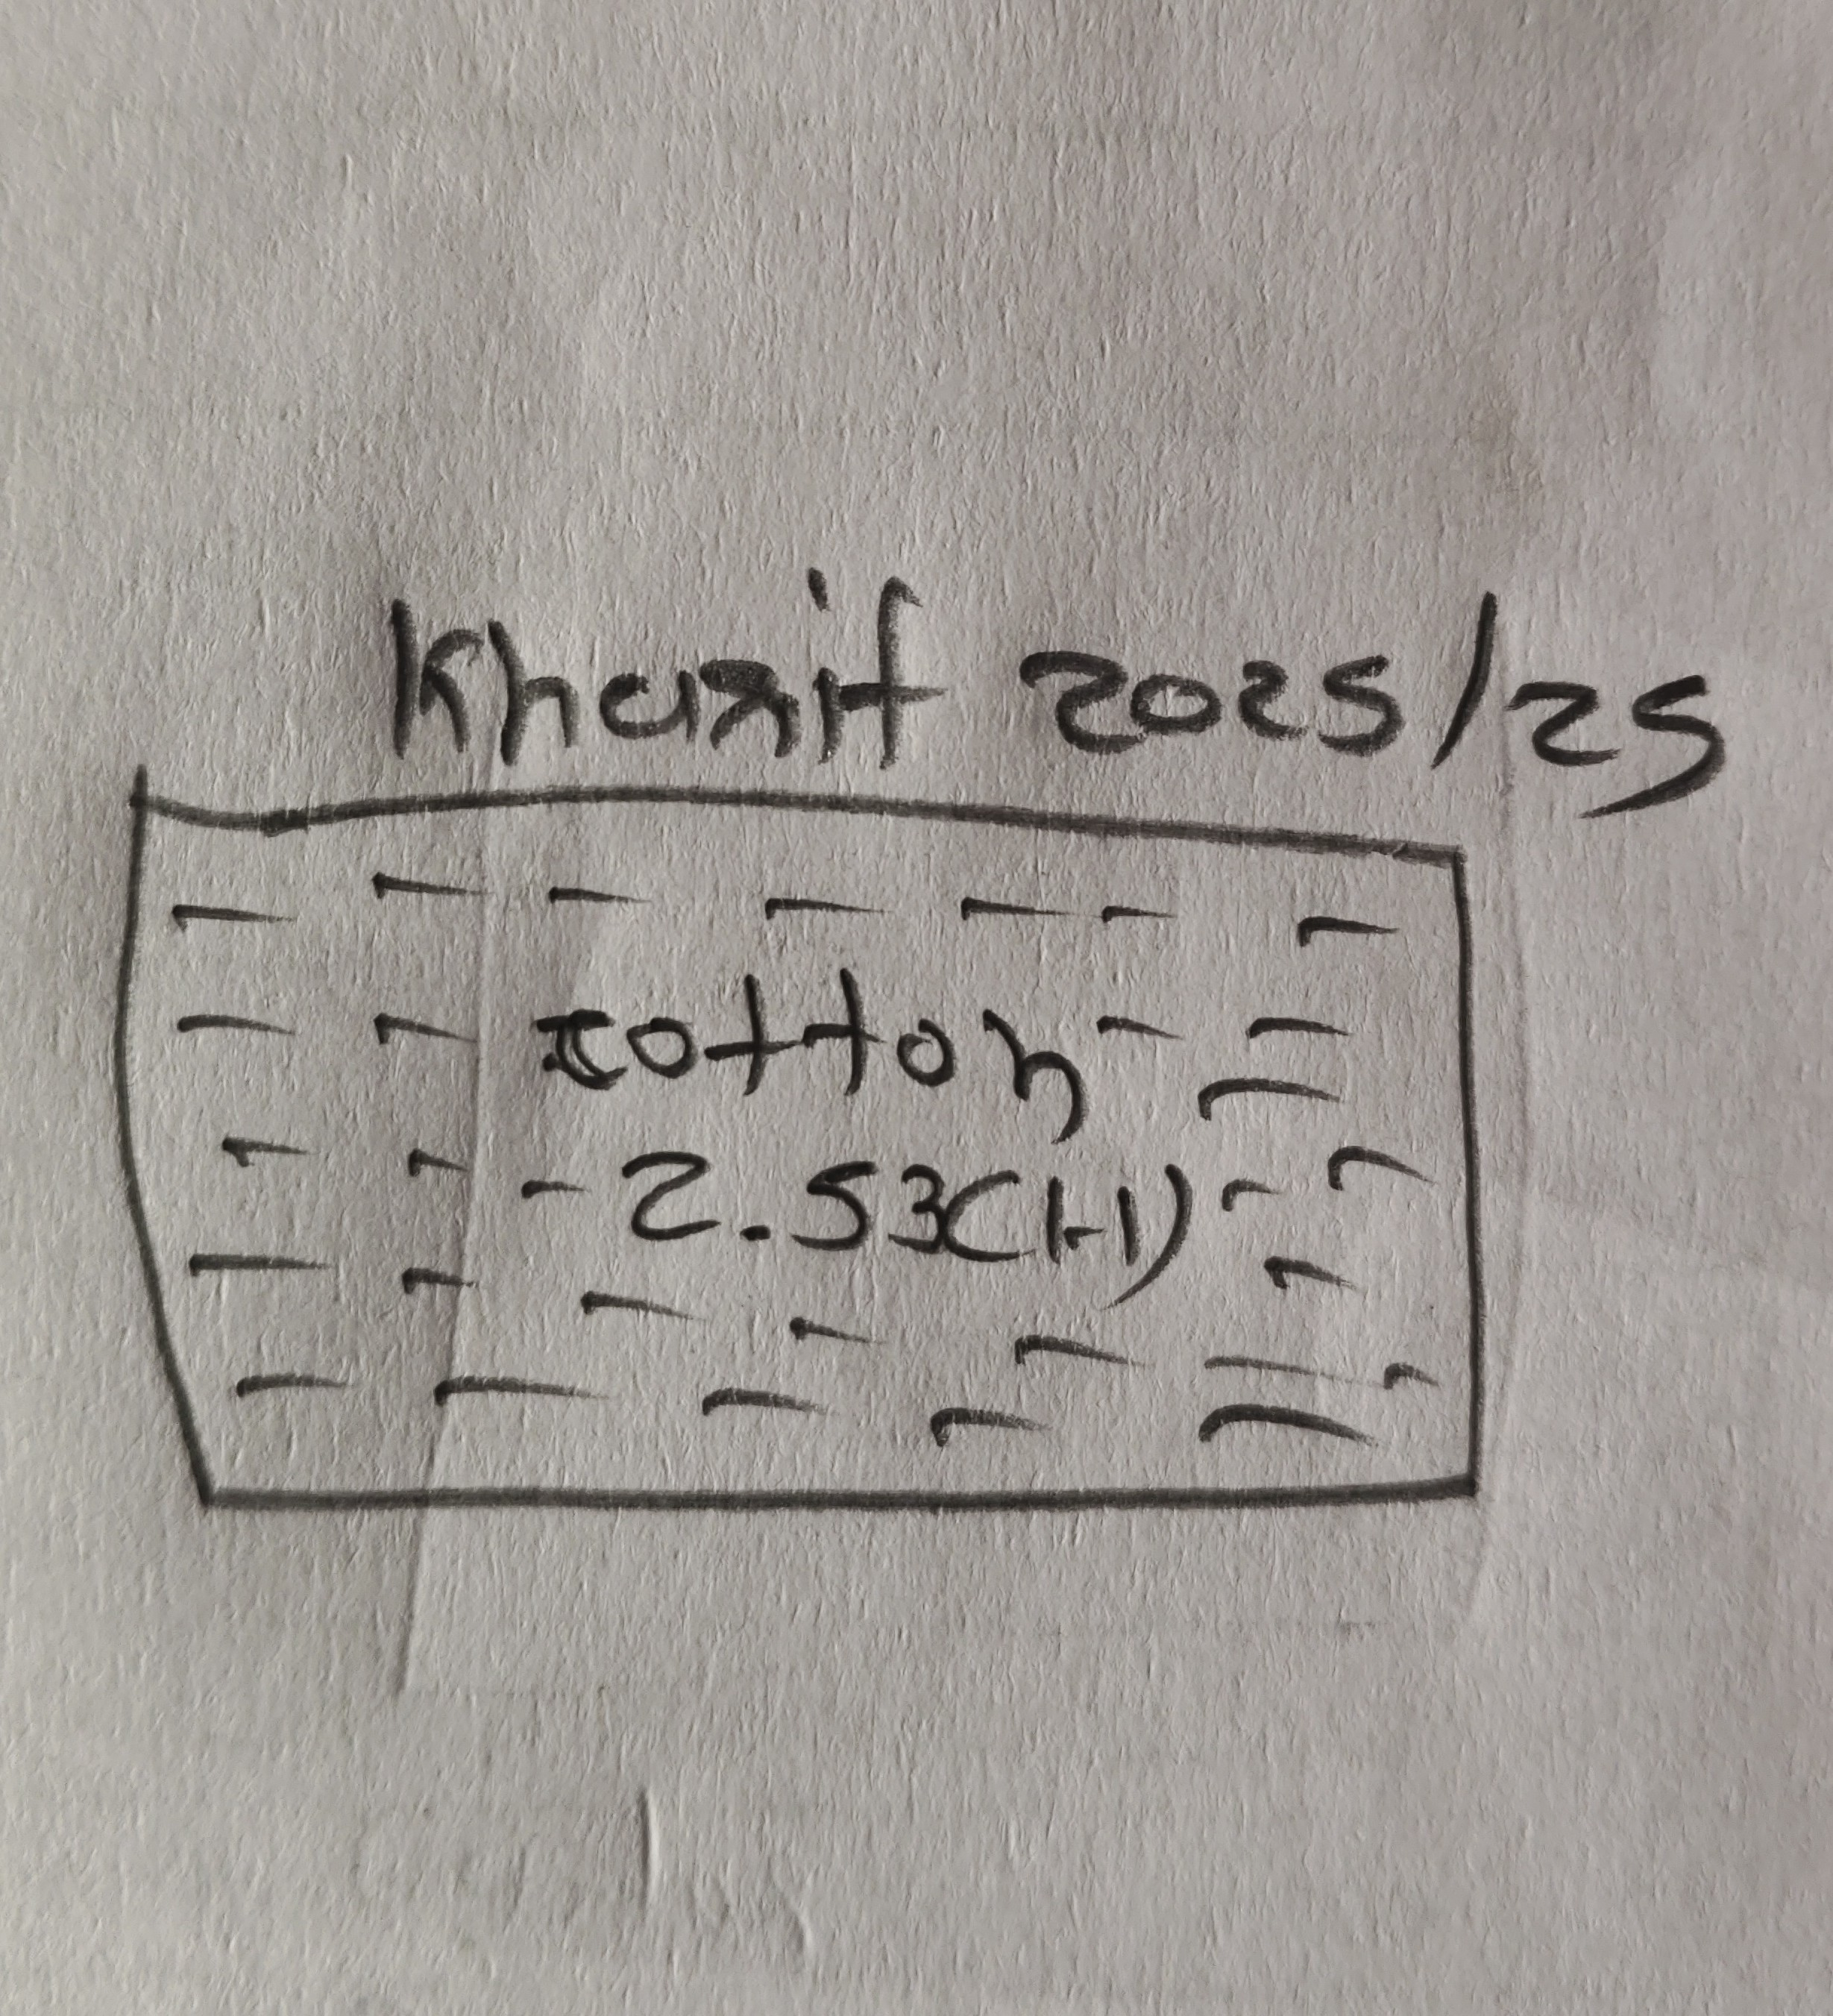 Kharif 2025/25
cotton
2.53(H)